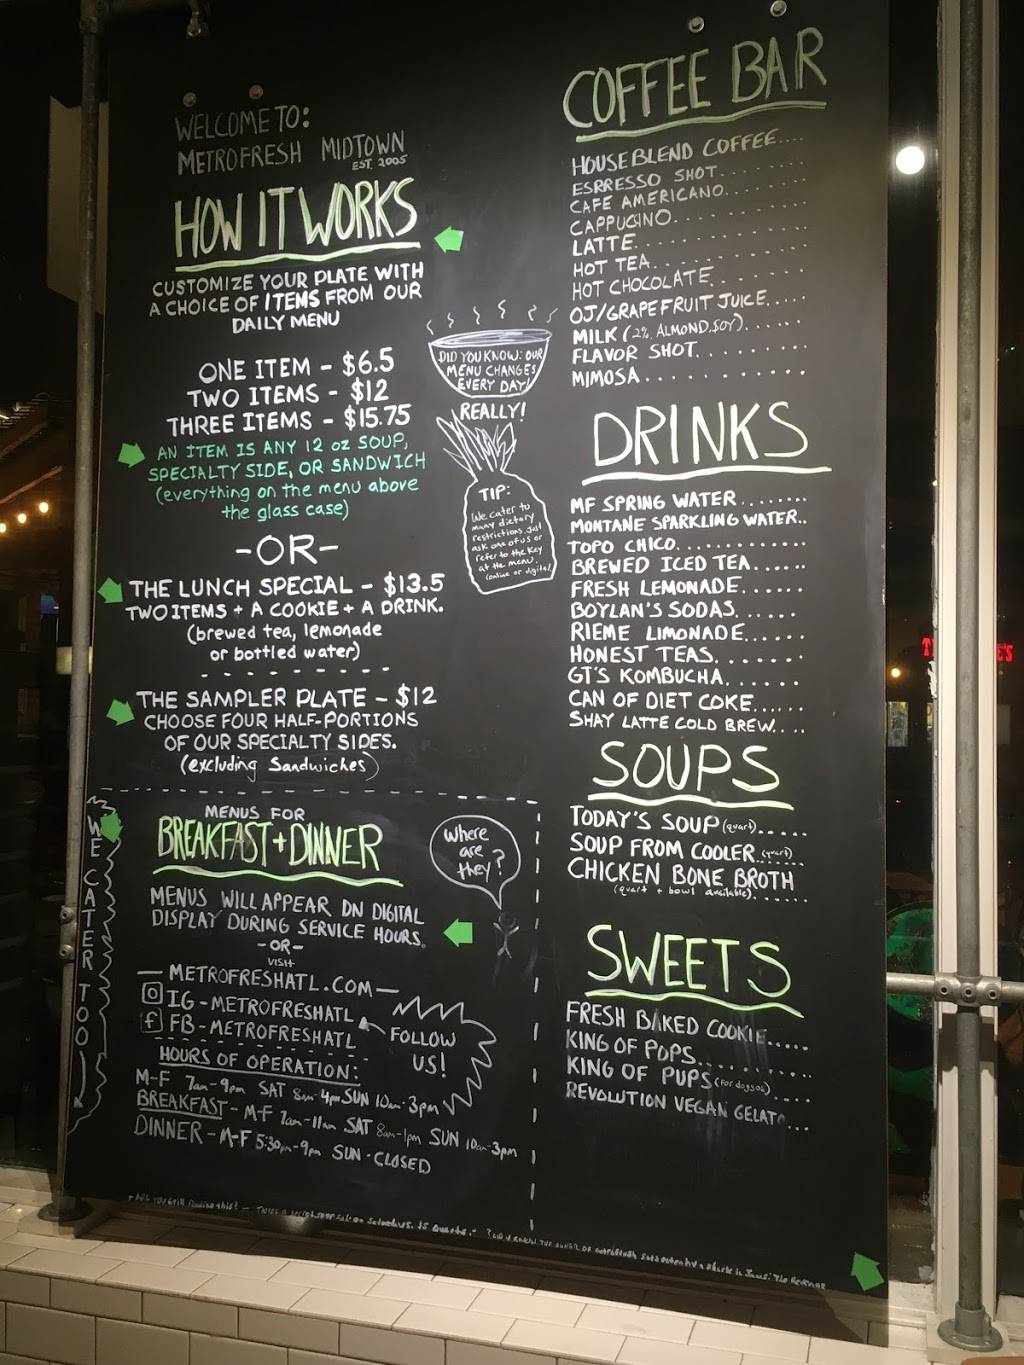 WELCOME TO:
METROFRESH MIDTOWN
EST. 2005
HOW IT WORKS
CUSTOMIZE YOUR PLATE WITH
A CHOICE OF ITEMS FROM OUR
DAILY MENU
ONE ITEM - $6.5
TWO ITEMS - $12
THREE ITEMS - $15.75
AN ITEM IS ANY 12 oz SOUP,
SPECIALTY SIDE, OR SANDWICH
(everything on the menu above
the glass case)
-OR-
THE LUNCH SPECIAL - $13.5
TWO ITEMS + A COOKIE + A DRINK.
(brewed tea, lemonade
or bottled water)
THE SAMPLER PLATE - $12
CHOOSE FOUR HALF-PORTIONS
OF OUR SPECIALTY SIDES.
(excluding Sandwiches)
DID YOU KNOW: OUR
MENU CHANGES
EVERY DAY!
REALLY!
TIP:
We cater to
many dietary
restrictions. Just
ask one of us or
refer to the Key
at the menu.
(online or digital
WE CATER TOO
MENUS FOR
BREAKFAST + DINNER
Where
are
they?
MENUS WILL APPEAR ON DIGITAL
DISPLAY DURING SERVICE HOURS.
-OR-
VISIT
- METROFRESHATL.COM -
IG - METROFRESHATL
f FB - METROFRESHATL
FOLLOW
US!
HOURS OF OPERATION:
M-F 7am-9pm SAT 8am-4pm SUN 10am-3pm
BREAKFAST - M-F 7am-11am SAT 8am-1pm SUN 10am-3pm
DINNER - M-F 5:30pm-9pm SUN - CLOSED
COFFEE BAR
HOUSE BLEND COFFEE....
ESPRESSO SHOT........
CAFE AMERICANO.......
CAPPUCINO...........
LATTE..............
HOT TEA............
HOT CHOCOLATE.......
OJ/GRAPEFRUIT JUICE.....
MILK (2%, ALMOND, SOY)......
FLAVOR SHOT.........
MIMOSA............
DRINKS
MF SPRING WATER........
MONTANE SPARKLING WATER..
TOPO CHICO............
BREWED ICED TEA......
FRESH LEMONADE.......
BOYLAN'S SODAS.......
RIEME LIMONADE......
HONEST TEAS........
GT'S KOMBUCHA.......
CAN OF DIET COKE......
SHAY LATTE COLD BREW....
SOUPS
TODAY'S SOUP (quart).....
SOUP FROM COOLER (quart)....
CHICKEN BONE BROTH
(quart + bowl available)......
SWEETS
FRESH BAKED COOKIE.....
KING OF POPS.........
KING OF PUPS (For dogs)....
REVOLUTION VEGAN GELATO...